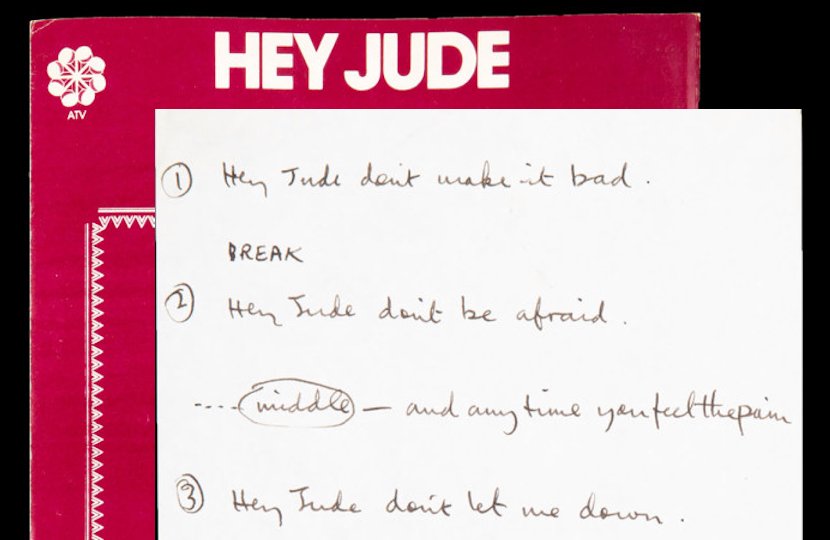 HEY JUDE
ATV
① Hey Jude don't make it bad.
BREAK
② Hey Jude don't be afraid.
.... middle — and any time you feel the pain
③ Hey Jude don't let me down.